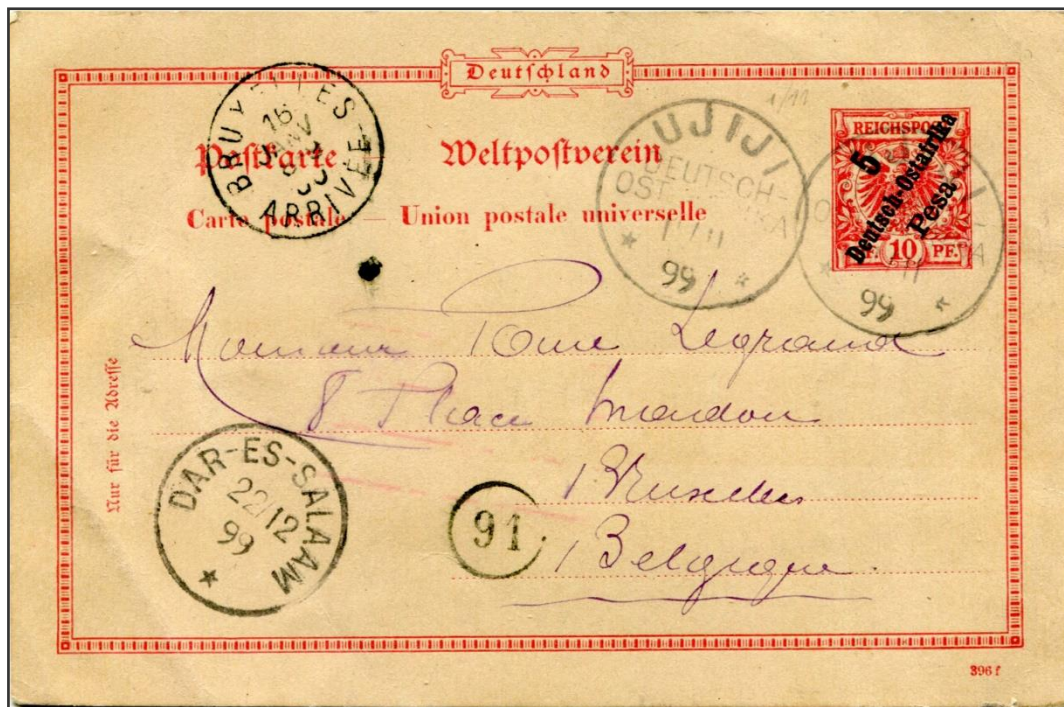 Deutschland
Postkarte Weltpostverein
Carte postale — Union postale universelle
BRUXELLES
16
JANV
ARRIVÉE
1/11
UJIJI
DEUTSCH-
OSTAFRIKA
11/11
99
REICHSPOST
5
Deutsch-Ostafrika
Pesa
10 PF.
99
Monsieur Legrand
8 Place Madou
Bruxelles
Belgique
Nur für die Adresse
DAR-ES-SALAAM
22/12
99
91
396 f